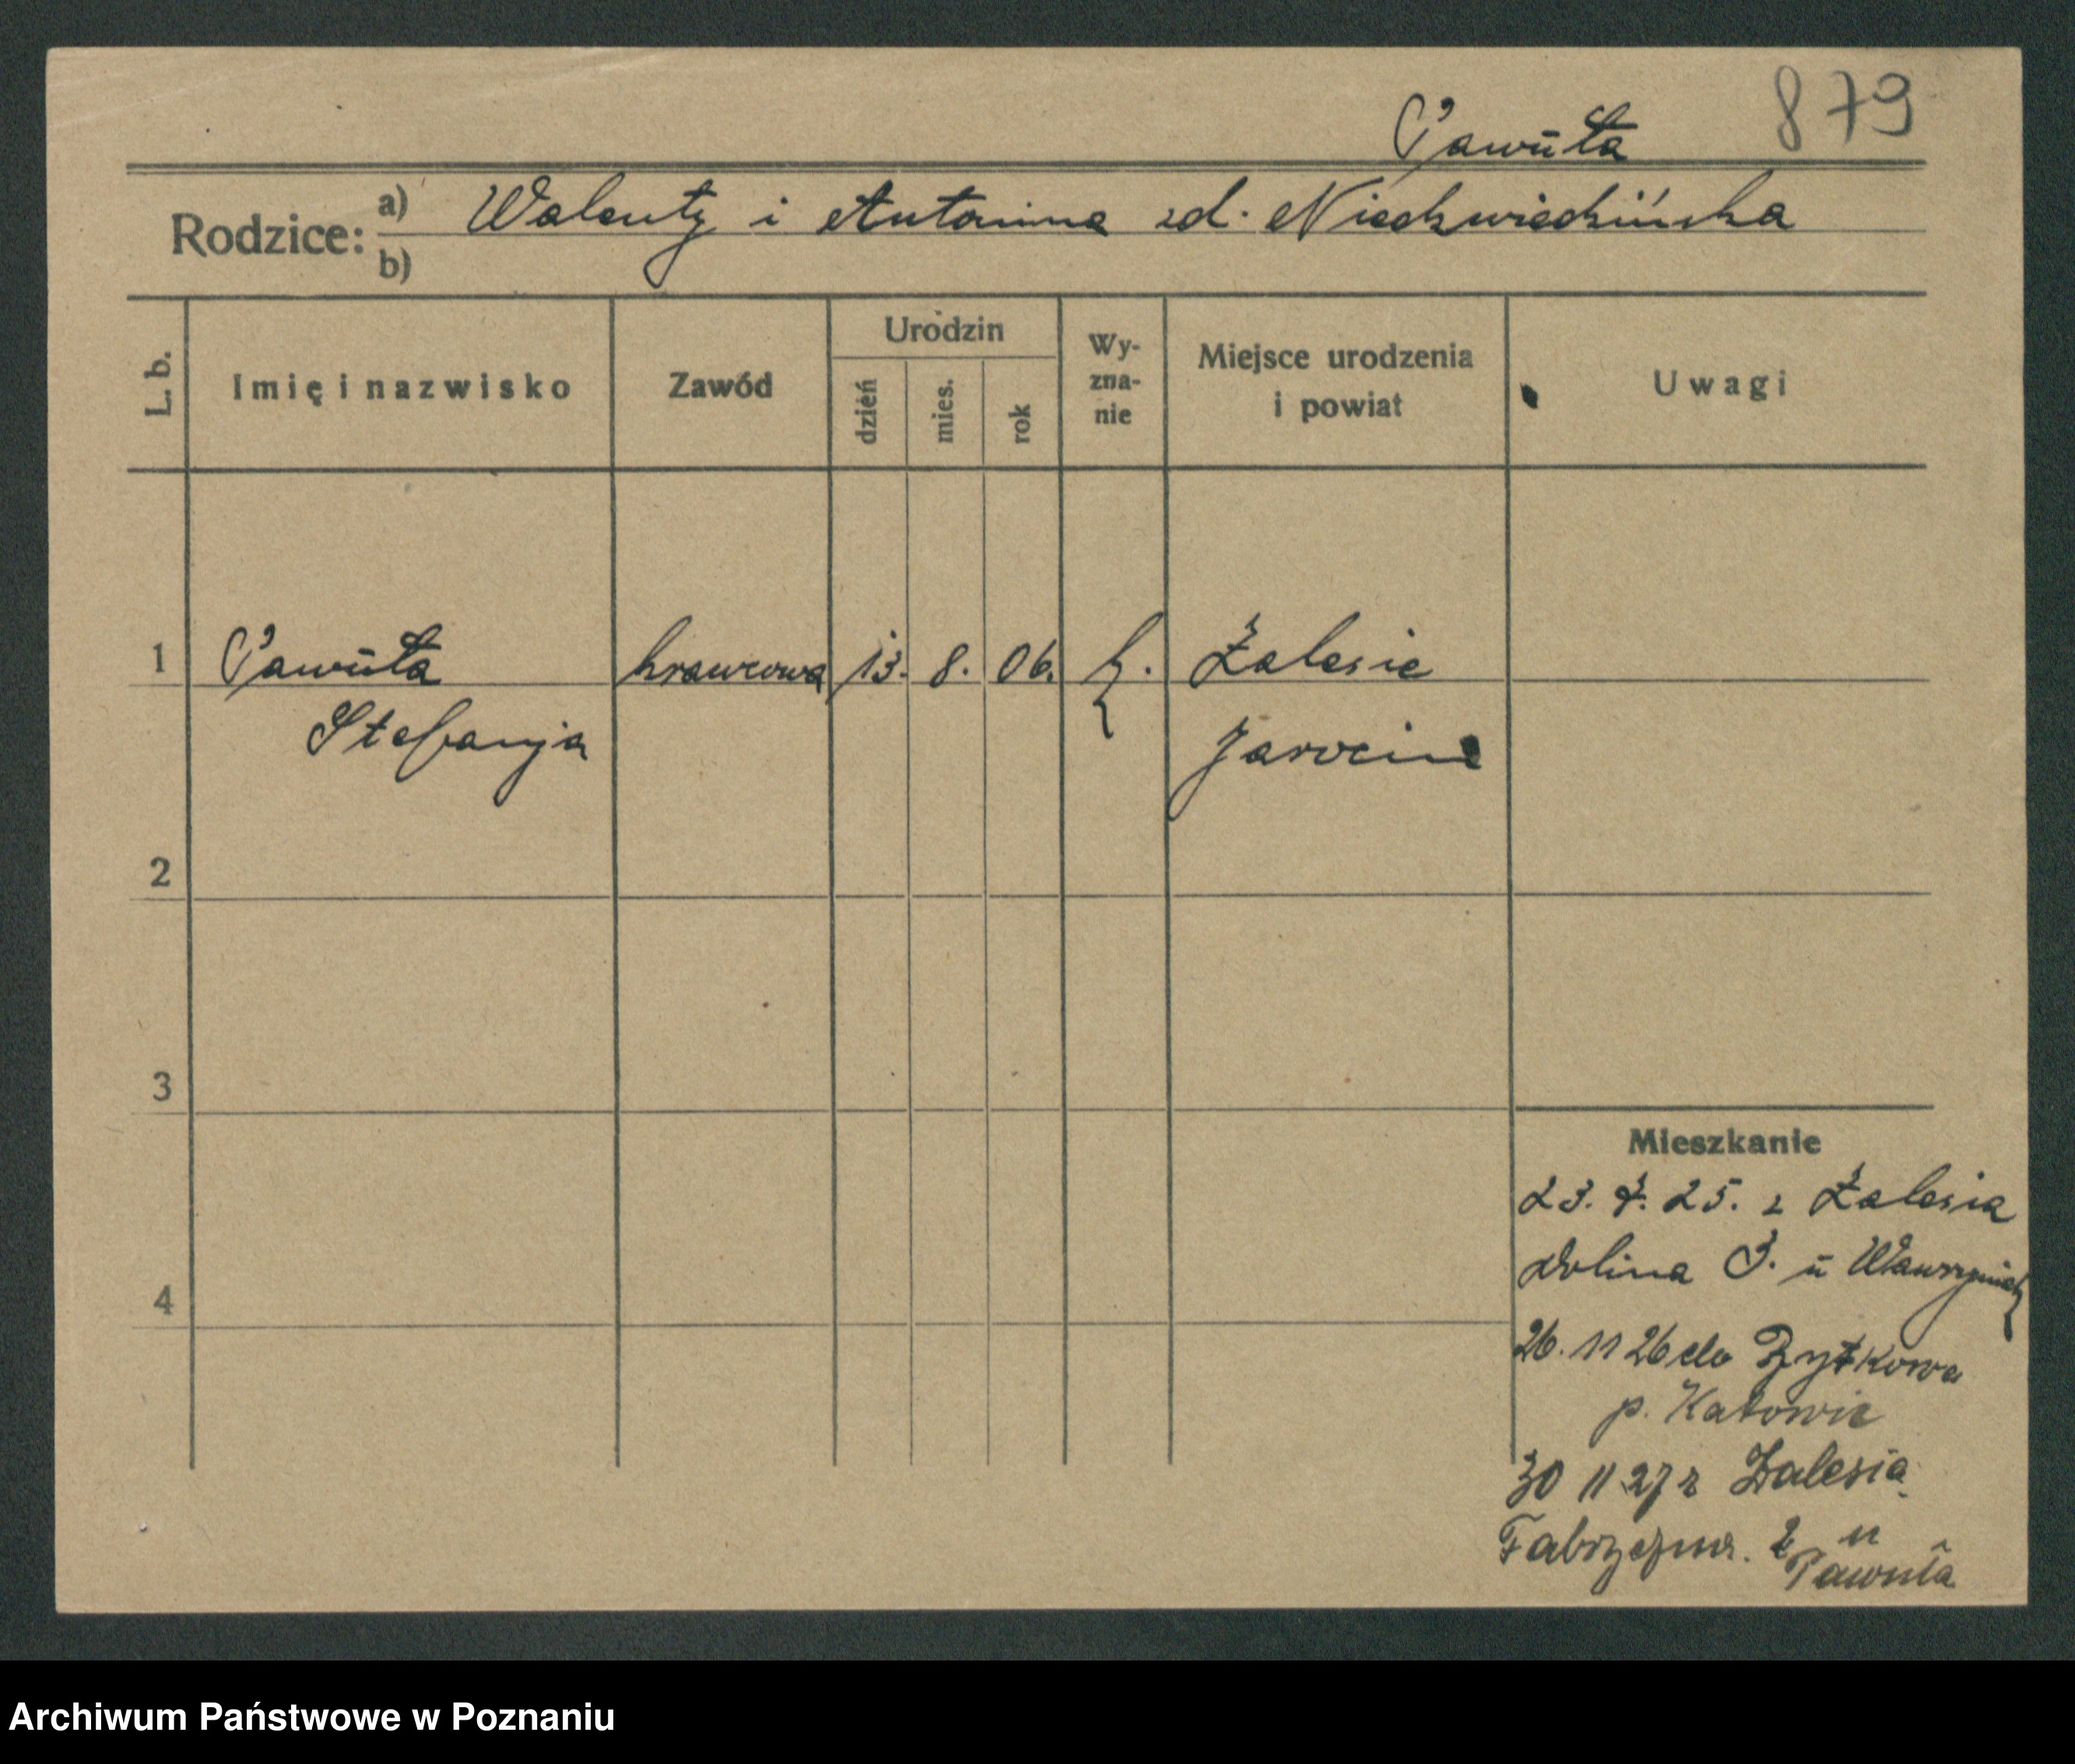 879
Pawuła
Rodzice: a) Walenty i Antonina zd. Niedzwiedzińska
b)
L. b.
Imię i nazwisko
Zawód
Urodzin
dzień
mies.
rok
Wy-
zna-
nie
Miejsce urodzenia
i powiat
Uwagi
1 Pawuła krawcowa 13. 8. 06. k. Zalesie
Stefanja Jarocin
2
3
4
Mieszkanie
23. 7. 25. z Zalesia
Dolina 3. u Wawrzyniak
26. 11 26 do
p. Katowic
30 11 27 z Zalesia
Fabryczna. 2 u
Pawuła
Archiwum Państwowe w Poznaniu